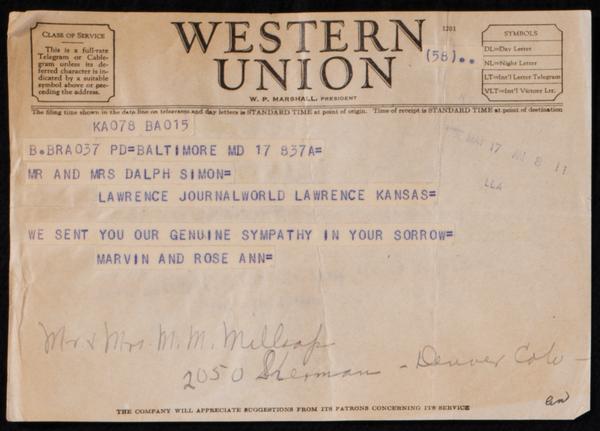 CLASS OF SERVICE
This is a full-rate
Telegram or Cable-
gram unless its de-
ferred character is in-
dicated by a suitable
symbol above or pre-
ceding the address.
WESTERN
UNION
W. P. MARSHALL, PRESIDENT
1201
(58)..
SYMBOLS
DL=Day Letter
NL=Night Letter
LT=Int'l Letter Telegram
VLT=Int'l Victory Ltr.
The filing time shown in the date line on telegrams and day letters is STANDARD TIME at point of origin. Time of receipt is STANDARD TIME at point of destination
KA078 BA015
B.BRA037 PD=BALTIMORE MD 17 837A=
MAY 17 8 11
LLA
MR AND MRS DALPH SIMON=
LAWRENCE JOURNALWORLD LAWRENCE KANSAS=
WE SENT YOU OUR GENUINE SYMPATHY IN YOUR SORROW=
MARVIN AND ROSE ANN=
Mr & Mrs. M. M. Millsap
2050 Sherman - Denver Colo -
THE COMPANY WILL APPRECIATE SUGGESTIONS FROM ITS PATRONS CONCERNING ITS SERVICE